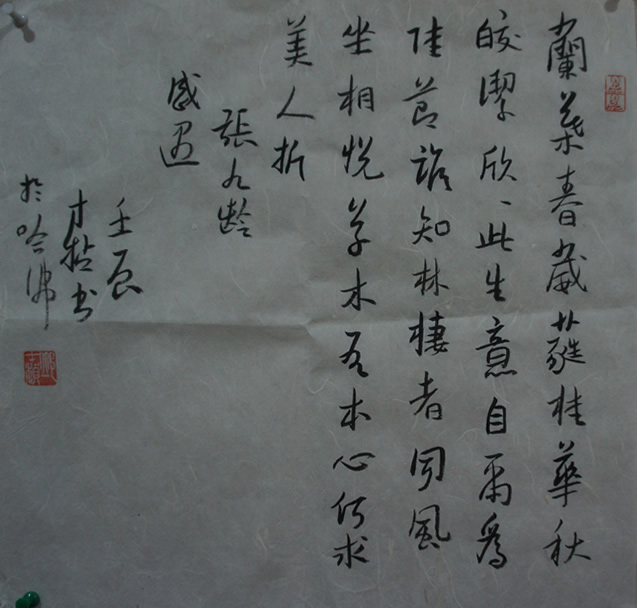 蘭葉春葳蕤桂華秋
皎潔欣〻此生意自爾為
佳節誰知林棲者聞風
坐相悅草木有本心何求
美人折
張九齡
感遇
壬辰
才拈书
於哈佛